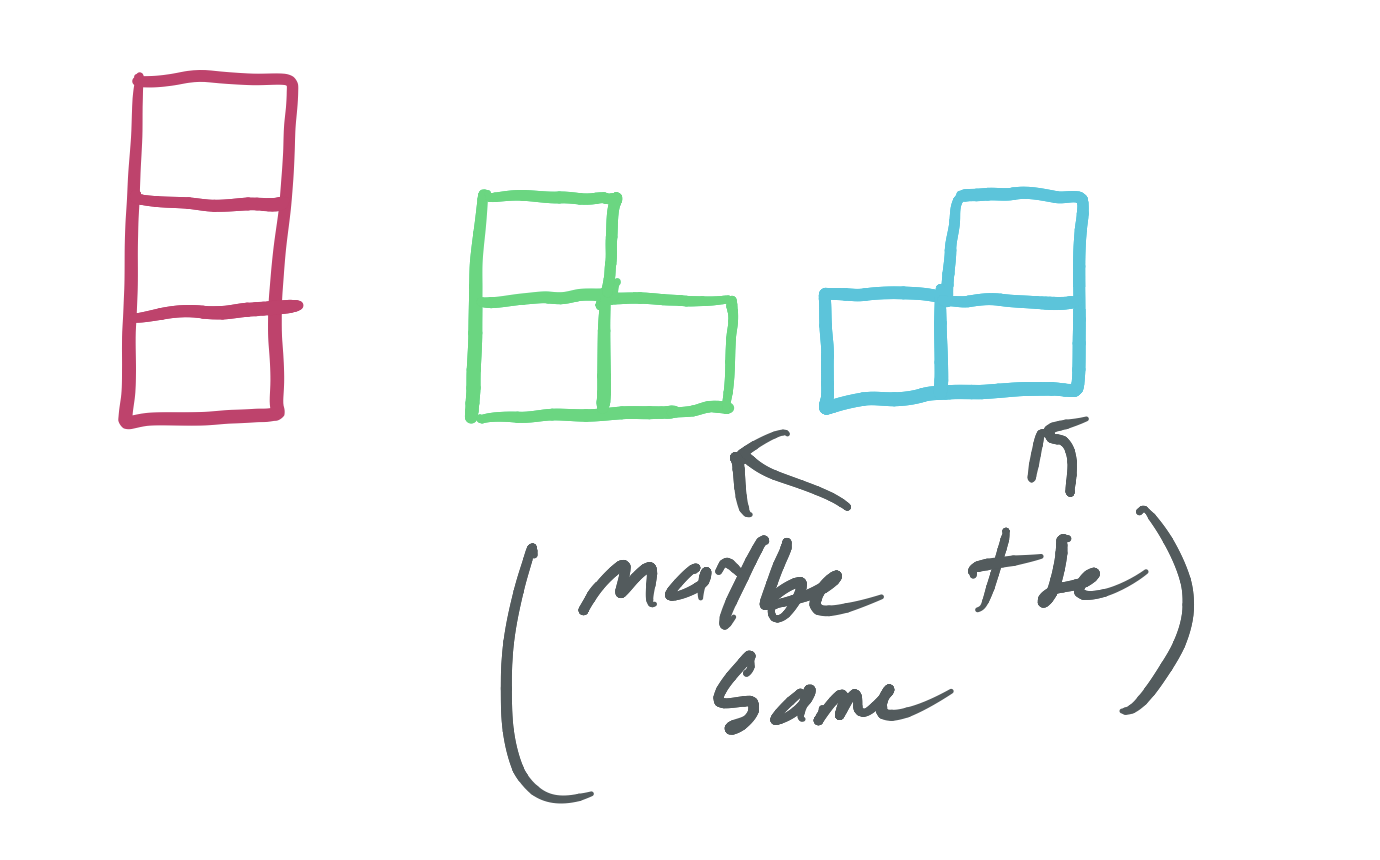 (maybe the
same)